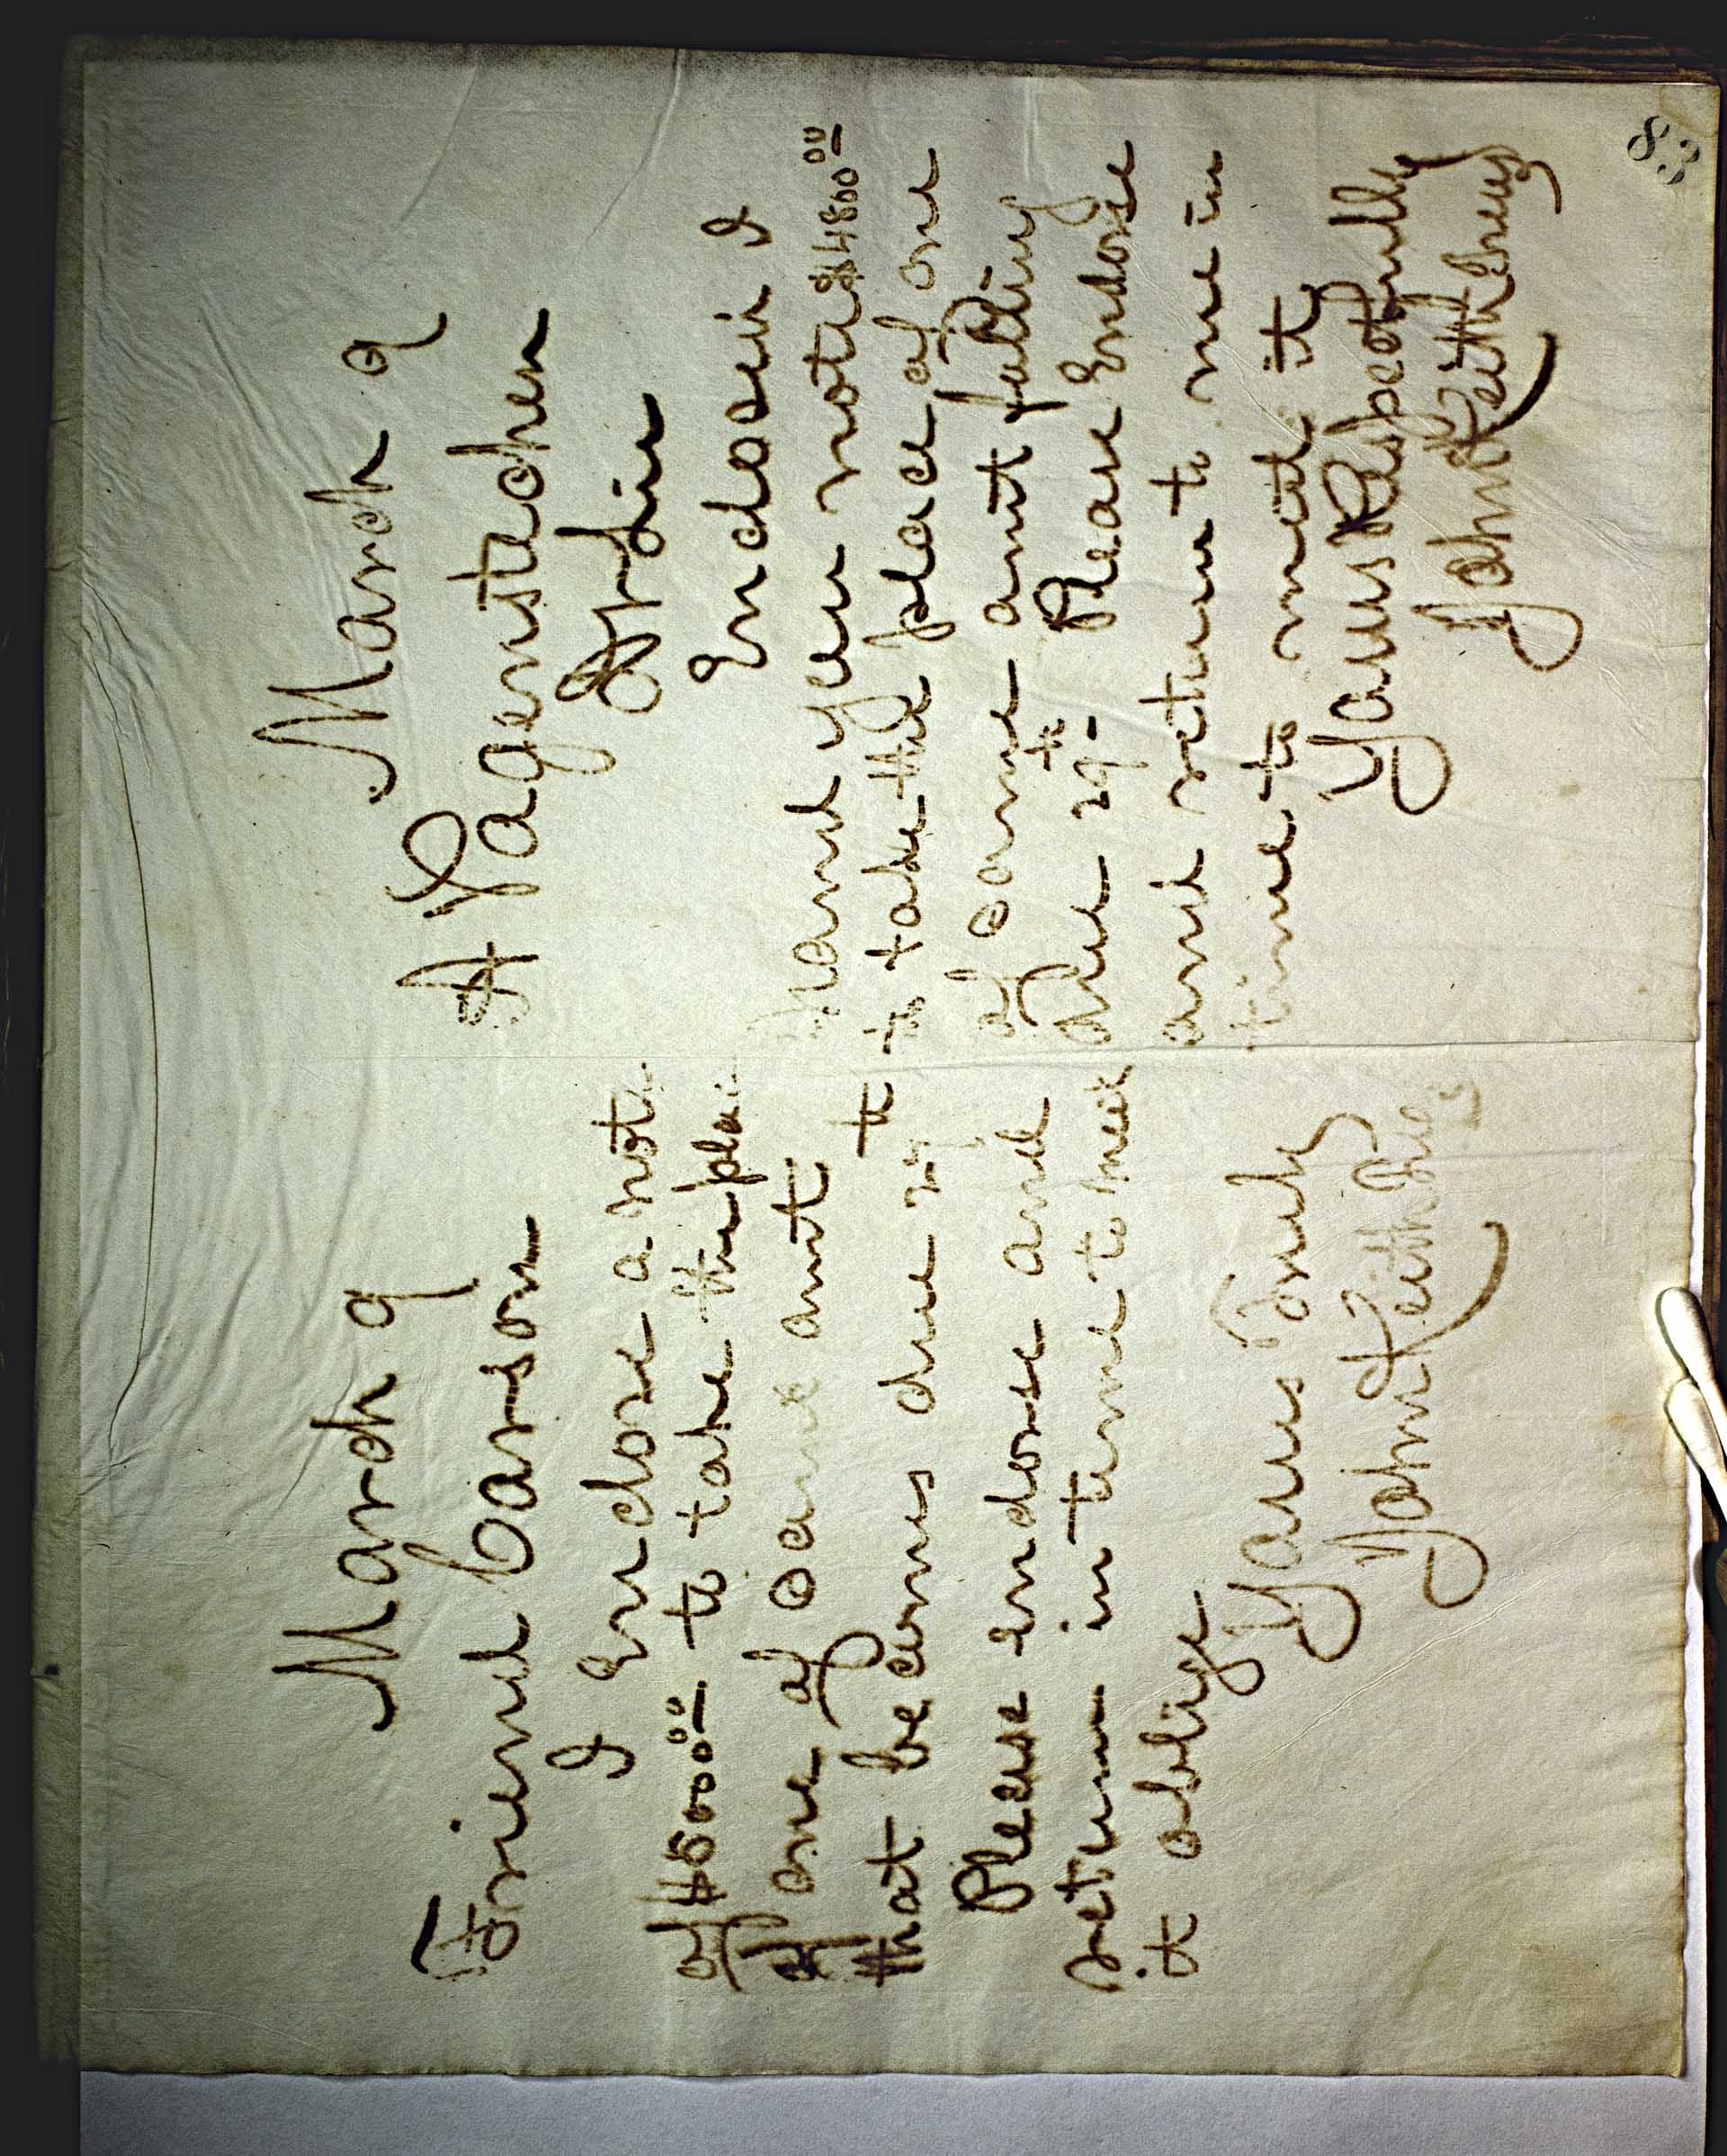 March 9
Friend Carson
I Enclose a note
of $500000 to take the place
of one of same amt
that becomes due 29th
Please endorse and
return in time to meet
it oblige
Yours Truly
John Keith
83
March 9
A Pagenstechen
Sir
Enclosed I
hand you note $480000
to take the place of one
of same amt falling
due 29th Please Endorse
and return to me in
time to meet it
Yours Respectfully
John Keith